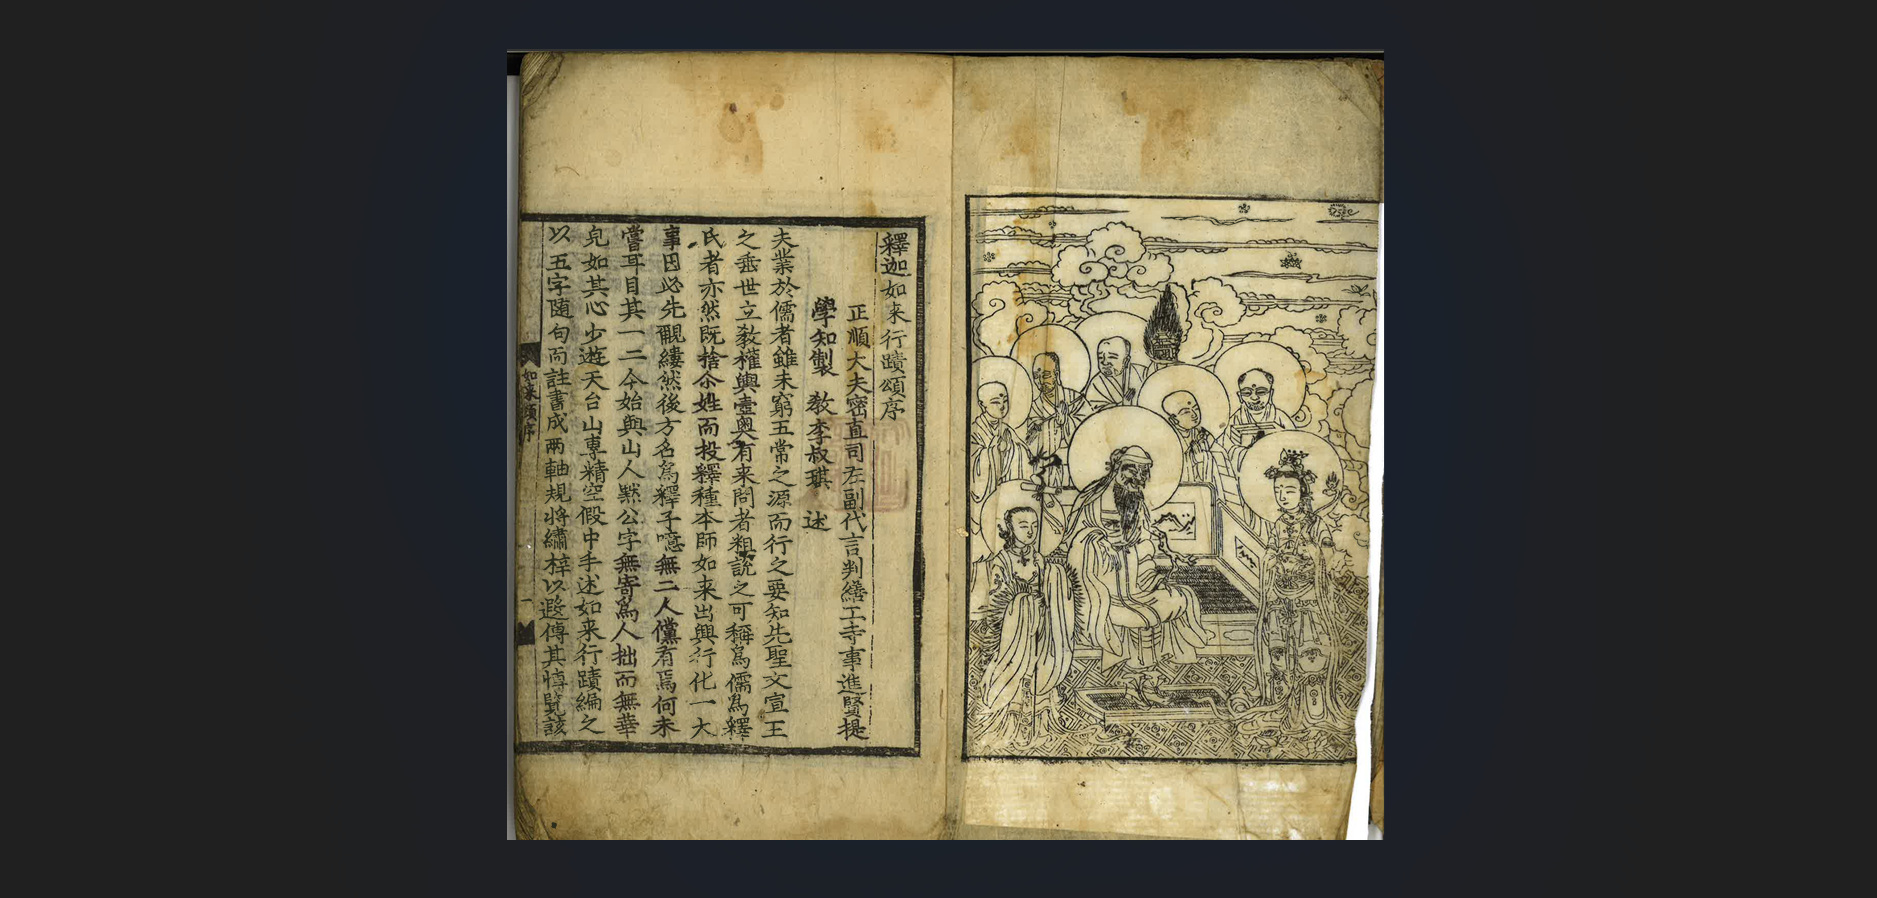 釋迦如来行蹟頌序
正順大夫密直司左副代言判繕工寺事進賢提
學知製　教李叔琪　述
夫業於儒者雖未窮五常之源而行之要知先聖文宣王
之垂世立教權輿壼奧有来問者粗說之可稱爲儒爲釋
氏者亦然既捨尒姓而投釋種本師如来出興行化一大
事因必先覼縷然後方名爲釋子噫無二人儻有焉何未
嘗耳目其一二今始與山人黙公字無寄爲人拙而無華
皃如其心少遊天台山專精空假中手述如来行蹟編之
以五字随句而註書成兩軸規將繡梓以遐傳其慱覽該
如来頌序
一